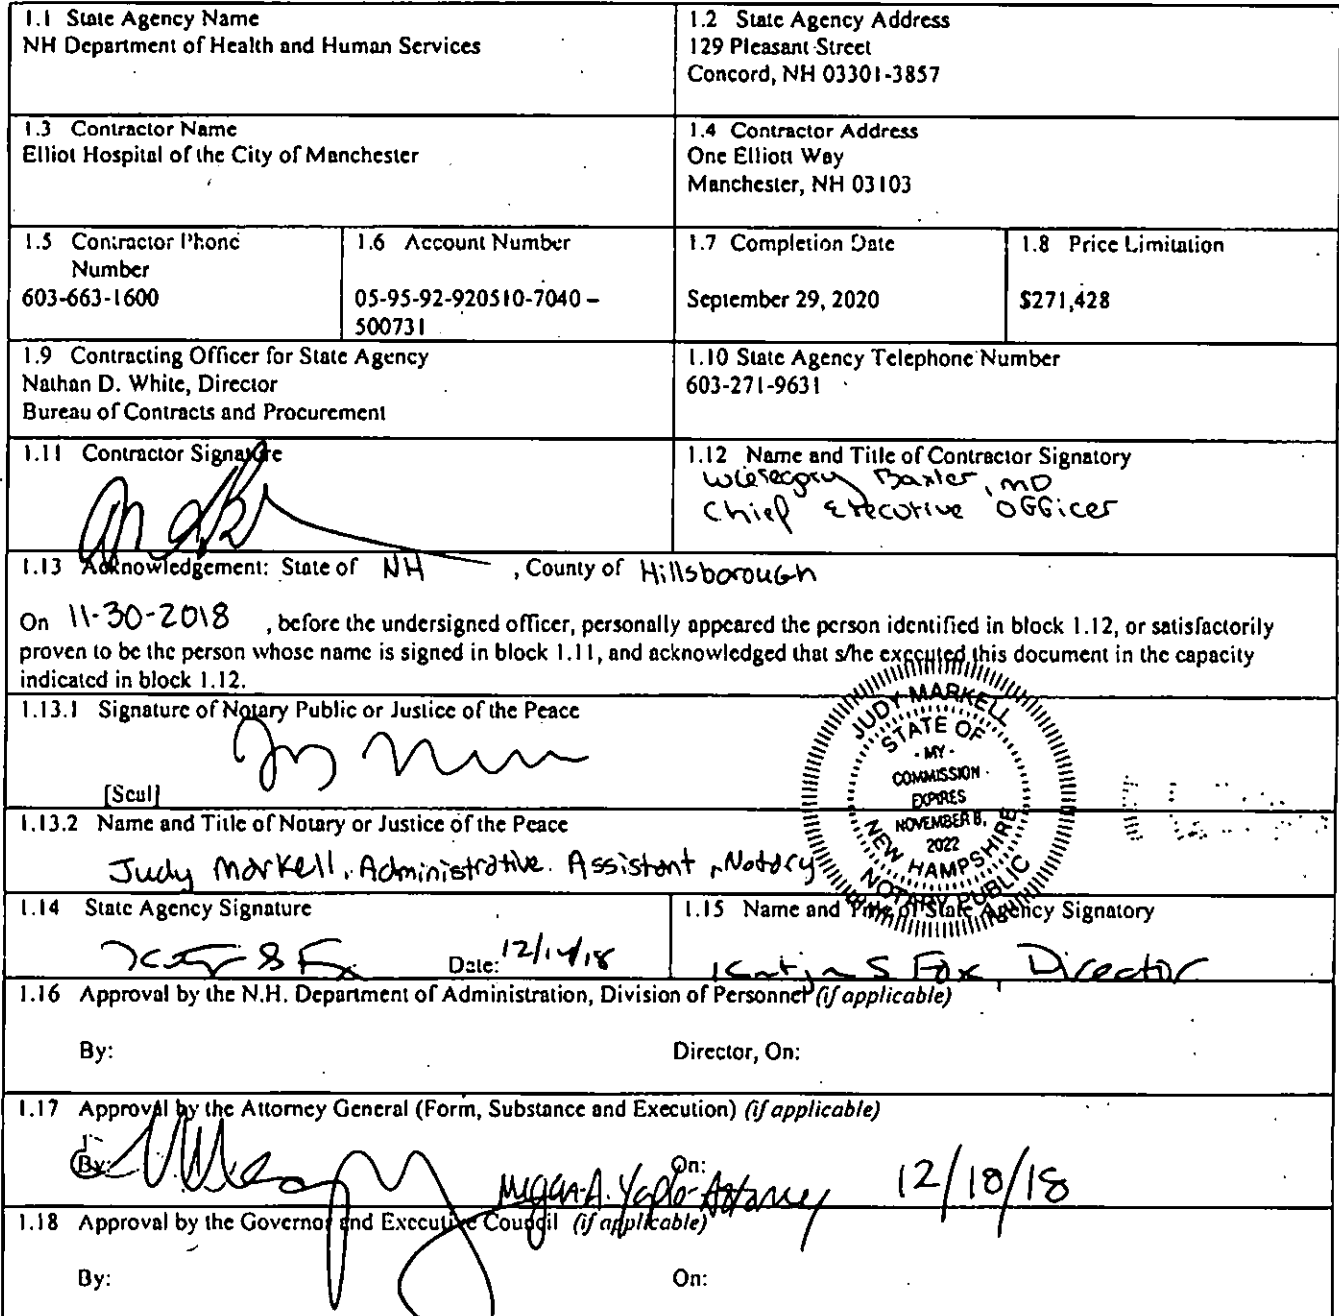 1.1 State Agency Name
NH Department of Health and Human Services
1.2 State Agency Address
129 Pleasant Street
Concord, NH 03301-3857
1.3 Contractor Name
Elliot Hospital of the City of Manchester
1.4 Contractor Address
One Elliott Way
Manchester, NH 03103
1.5 Contractor Phone
Number
603-663-1600
1.6 Account Number
05-95-92-920510-7040 –
500731
1.7 Completion Date
September 29, 2020
1.8 Price Limitation
$271,428
1.9 Contracting Officer for State Agency
Nathan D. White, Director
Bureau of Contracts and Procurement
1.10 State Agency Telephone Number
603-271-9631
1.11 Contractor Signature
1.12 Name and Title of Contractor Signatory
Baxter, MD
Chief Executive Officer
1.13 Acknowledgement: State of NH , County of Hillsborough
On 11-30-2018 , before the undersigned officer, personally appeared the person identified in block 1.12, or satisfactorily
proven to be the person whose name is signed in block 1.11, and acknowledged that s/he executed this document in the capacity
indicated in block 1.12.
1.13.1 Signature of Notary Public or Justice of the Peace
[Seal]
JUDY MARKELL
STATE OF
- MY -
COMMISSION
EXPIRES
NOVEMBER 8,
2022
NEW HAMPSHIRE
NOTARY PUBLIC
1.13.2 Name and Title of Notary or Justice of the Peace
Judy Markell, Administrative Assistant, Notary
1.14 State Agency Signature
Date: 12/14/18
1.15 Name and Title of State Agency Signatory
S Fox Director
1.16 Approval by the N.H. Department of Administration, Division of Personnel (if applicable)
By:
Director, On:
1.17 Approval by the Attorney General (Form, Substance and Execution) (if applicable)
By:
On:
Attorney 12/18/18
1.18 Approval by the Governor and Executive Council (if applicable)
By:
On: